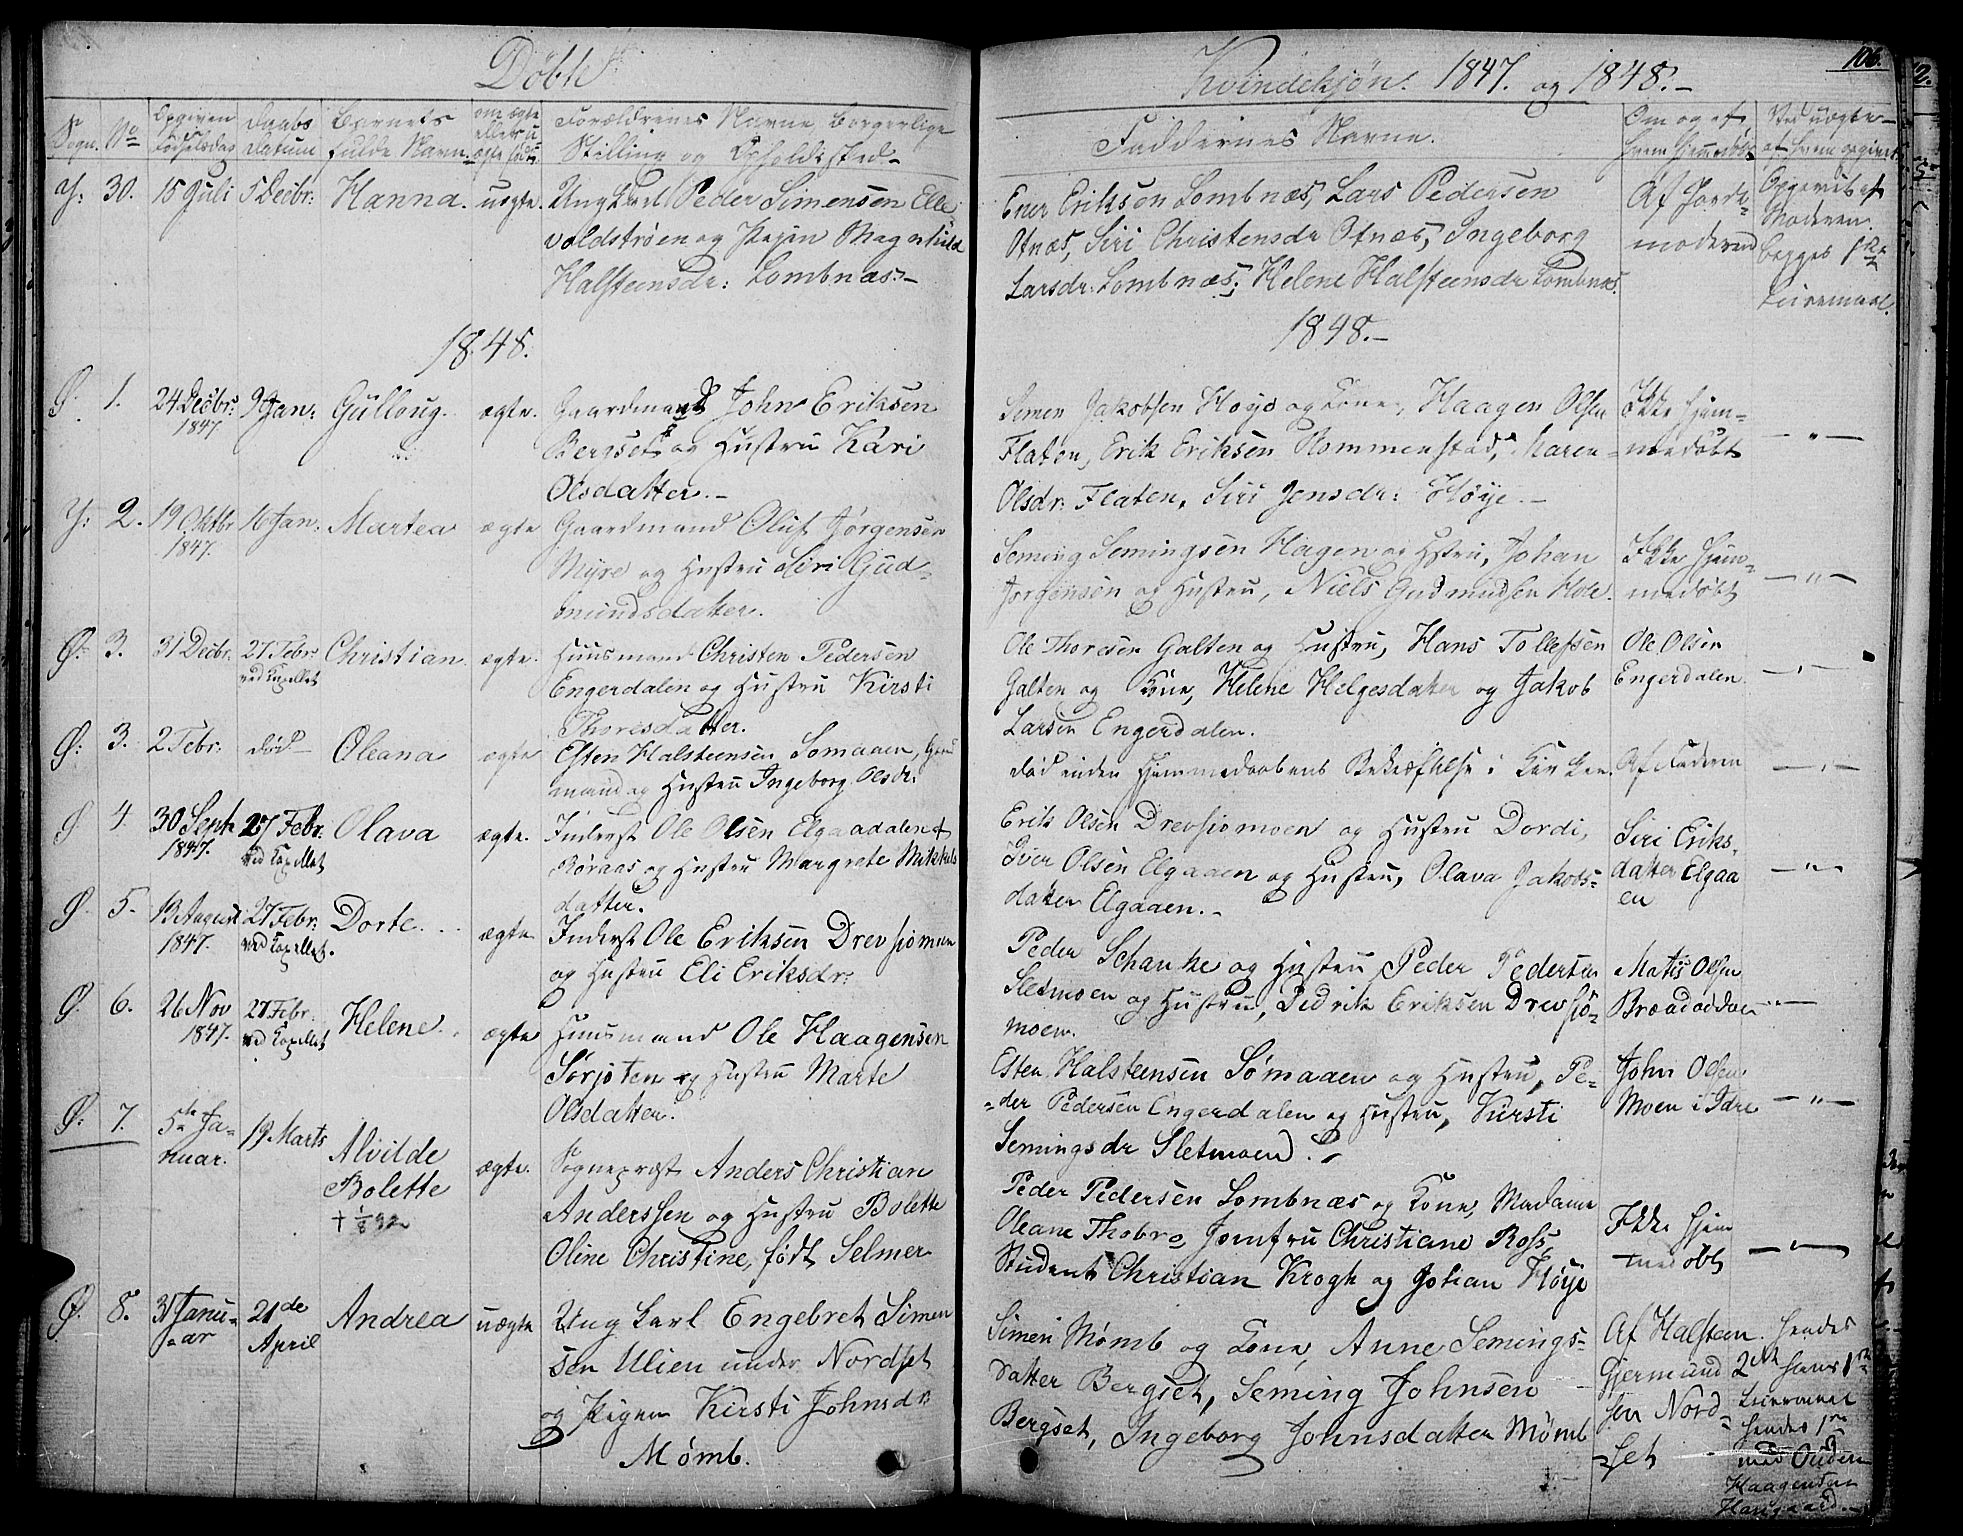 Døbte
Kvindekjøn. 1847. og 1848.-
106.
Sogn. No Opgiven Fødselsdag Daabs Datum Barnets fulde Navn. om ægte eller uægte født Forældrenes Navne, borgerlige Stilling og Opholdssted- Faddernes Navne. Om og af hvem hjemmedøbt Ved uægte- af hvem opgivet
Y: 30. 15 Juli 5 Decbr: Hanna. uægte. Ungkarl Peder Simensen Elle-
voldstrøen og Pigen Magnhild
Halsteensdr: Lombnæs.-
Ener Eriksen Lombnæs, Lars Pedersen
Otnæs, Siri Christensdr Otnæs, Ingeborg
Larsdr. Lombnæs, Helene Halsteensdr Lombnæs.
Af Jorde-
moderen
Opgivet af
Moderen.
begges 1ste
Leiermaal.
1848.
1848.-
Ø. 1. 24 Decbr: 1847 9 Jan: Gulloug. ægte. Gaardmand John Eriksen
Bergset og Hustru Kari
Olsdatter.-
Semen Jakobsen Høye og Kone, Haagen Olsen
Flaten, Erik Eriksen Rommenstad, Karen
Olsdr: Flaten, Siri Jensdr: Høye.-
Ikke hjem-
medøbt
- " -
Y: 2. 19 Oktbr 1847. 16 Jan: Martea ægte Gaardmand Oluf Jørgensen
Myre og Hustru Siri Gud-
mundsdatter.
Seming Semingsen Hagen og Hstru, Johan
Jørgensen og Hustru, Niels Gudmudsen Hole.
Ikke hjem-
medøbt
- " -
Ø: 3. 31 Decbr. 27 Febr: ved Kapellet Christian ægte. Huusmand Christen Pedersen
Engerdalen og Hustru Kirsti
Thoresdatter.
Ole Thoresen Galten og Hustru, Hans Tollefsen
Galten og Kone, Helene Helgesdatter og Jakob
Larsen Engerdalen.
Ole Olsen
Engerdalen.
- " -
Ø: 3. 2 Febr: død Oleana ægte Esten Halsteensen Sømaaen, Gaard
mand og Hustru Ingeborg Olsdr:
død inden Hjemmedaabens Bekræftelse i Kirken. Af Faderen
- " -
Ø 4. 30 Septr 1847. 27 Febr. ved Kapellet Olava ægte. Inderst Ole Olsen Elgaadalen af
Røraas og Hustru Margrete Mikkels
datter.
Erik Olsen Drevsiømoen og Hustru Dordi,
Iver Olsen Elgaaen og Hustru, Olava Jakobs-
datter Elgaaen.-
Siri Eriks-
datter Elgaa
en
- " -
Ø. 5. 13 August 1847. 27 Febr: ved Kapellet. Dorte. ægte Inderst Ole Eriksen Drevsiømoen
og Hustru Eli Eriksdr:
Peder Schanke og Hustru, Peder Pedersen
Sletmoen og Hustru, Didrik Eriksen Drevsiø-
moen.
Mats Olsen
- " -
Ø. 6. 26 Nov 1847. 27 Febr. ved Kapellet Helene. ægte Huusmand Ole Haagensen
Sørjoten og Hustru Marte
Olsdatter.
Esten Halsteensen Sømaaen og Hustru, Pe-
-der Pedersen Engerdalen og Hustru, Kirsti
Semingsdr Sletmoen.
John Olsen
Moen i Idre
- " -
Ø. 7. 5te Ja-
nuar. 19 Marts Alvilde
Bolette
ægte. Sognepræst Anders Christian
Anderssen og Hustru Bolette
Oline Christine, født Selmer
Peder Pedersen Lombnæs og Kone, Madame
Oleane Thobro, Jomfru Christiane Ross,
Student Christian Krogh og Johan Høye
Ikke hjem
medøbt
- " -
Ø. 8. 31 Janu-
-ar 21de
April Andrea uægte Ung Karl Engebret Simen
sen Ulien under Nordset
og Pigen Kirsti Johnsdr
Mømb.
Simen Mømb og Kone, Anne Semings-
datter Bergset, Seming Johnsen
Bergset, Ingeborg Johnsdatter Mømb
Af Halsteen
Gjermund
sen Nord-
-set
hendes
2det hans 1ste
Leiermaal
hendes 1ste
med
Haagensen